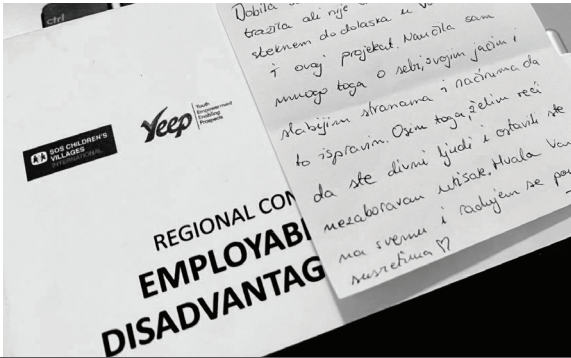 ctrl
SOS CHILDREN'S
VILLAGES
INTERNATIONAL
Yeep
Youth
Empowerment
Enabling
Prospects
REGIONAL CON
EMPLOYABI
DISADVANTAG
Dobila
tražila ali nije
steknem do dolaska u
i ovaj projekat. Naučila sam
mnogo toga o sebi, svojim jačim i
slabijim stranama i načinima da
to ispravim. Osim toga, želim reći
da ste divni ljudi i ostavili ste
nezaboravan utisak. Hvala Vam
na svemu i radujem se
susretima ♡